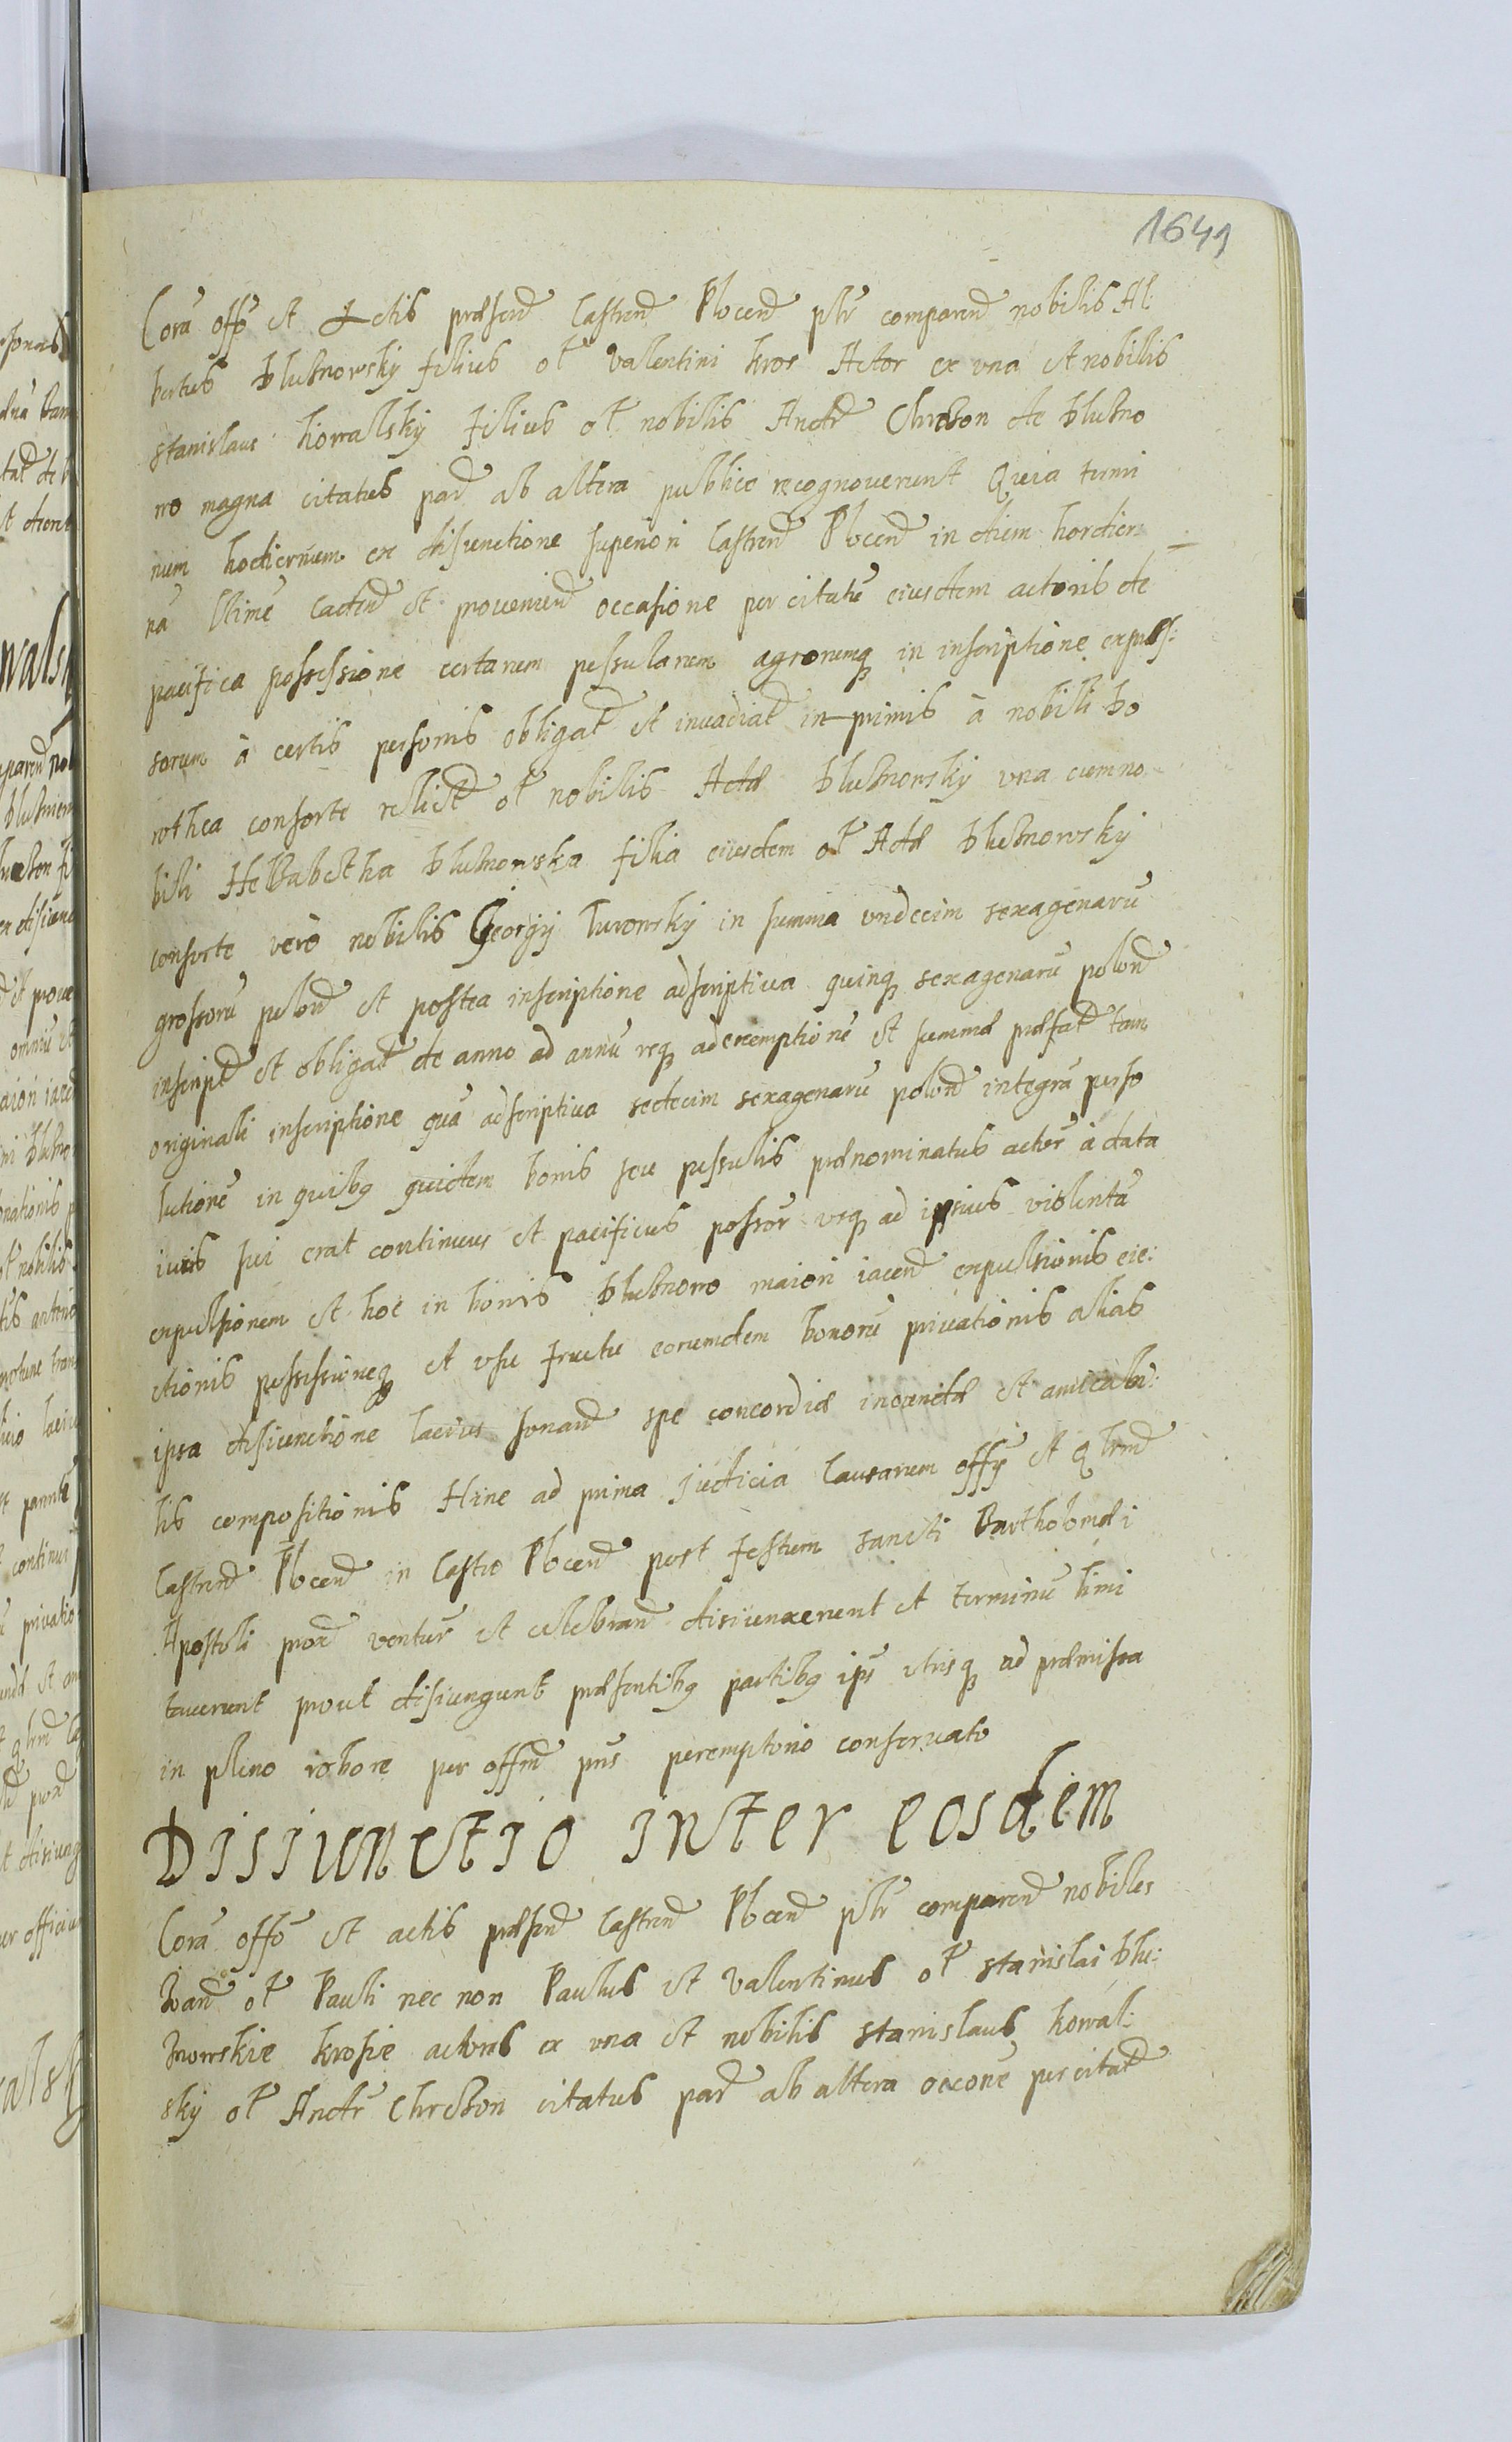 1641
Corā offō et Actis præsend Castrend Plocend plr comparend nobilis Al:
bertus Dłutnowsky filius ol Valentini kros Actor ex vna et nobilis
stanislaus kowallsky filius ol nobilis Andr Chreston de Dłutno
wo magna citatus pad ab altera publice recognoverunt Quia termi
num hodiernum ex disiunctione superiori Castrend Plocend in diem hordier
nā ltime cadend et proveniend occasione per citatū eiusdem actoris de
pacifica possessione certarum pessularum agrorumq in inscriptione expræs:
sorum à certis personis obligat et invadiat in primis à nobili Do
rothea consorte relict ol nobilis Adæ Dłutnowsky vna cum no
bili Helzabetha Dłutnowska filia eiusdem ol Adæ Dłutnowsky
consorte verò nobilis Georgij Turowsky in summa vndecim sexagenarū
grossorū polond et postea inscriptione adscriptiva quinq sexagenarū polond
inscript et obligat de anno ad annū vsq ad exemptionē et summæ præfatæ tam
originali inscriptione quā adscriptiva sedecim sexagenarū polond integrā perso
lutionē in quibq quidem bonis seu pessulis prænominatus actor à data
iuris sui erat continuus et pacificus possor vsq ad ipsius violentā
expulsionem et hoc in bonis Dłutnowo maiori iacend expulsionis eie:
ctionis possessioneq et vsu fructu eorumdem bonorū privationis alias
ipsa disiunctione lacius sonand spe concordiæ ineundæ et amicabi:
lis compositionis Hinc ad prima judicia Causarum offÿ et qlrnd
Castrend Plocend in Castro Plocend post festum sancti Bartholomæi
Apostoli prox ventur et celebrand disiunxerunt et terminū limi
taverunt prout disiungunt præsentibq partibq ips vtrisq ad præmissa
in pleno robore per offm pns peremptorio conservato
Disiunctio inter eosdem
Corā offō et actis præsend Castrend Plocend plr comparend nobiles
Ioan ol Pauli nec non Paulus et Valentinus ol stanislai Dłu:
tnowskie krosie actores ex vna et nobilis stanislaus kowal:
sky ol Andr Chreston citatus pad ab altera occone per citatū